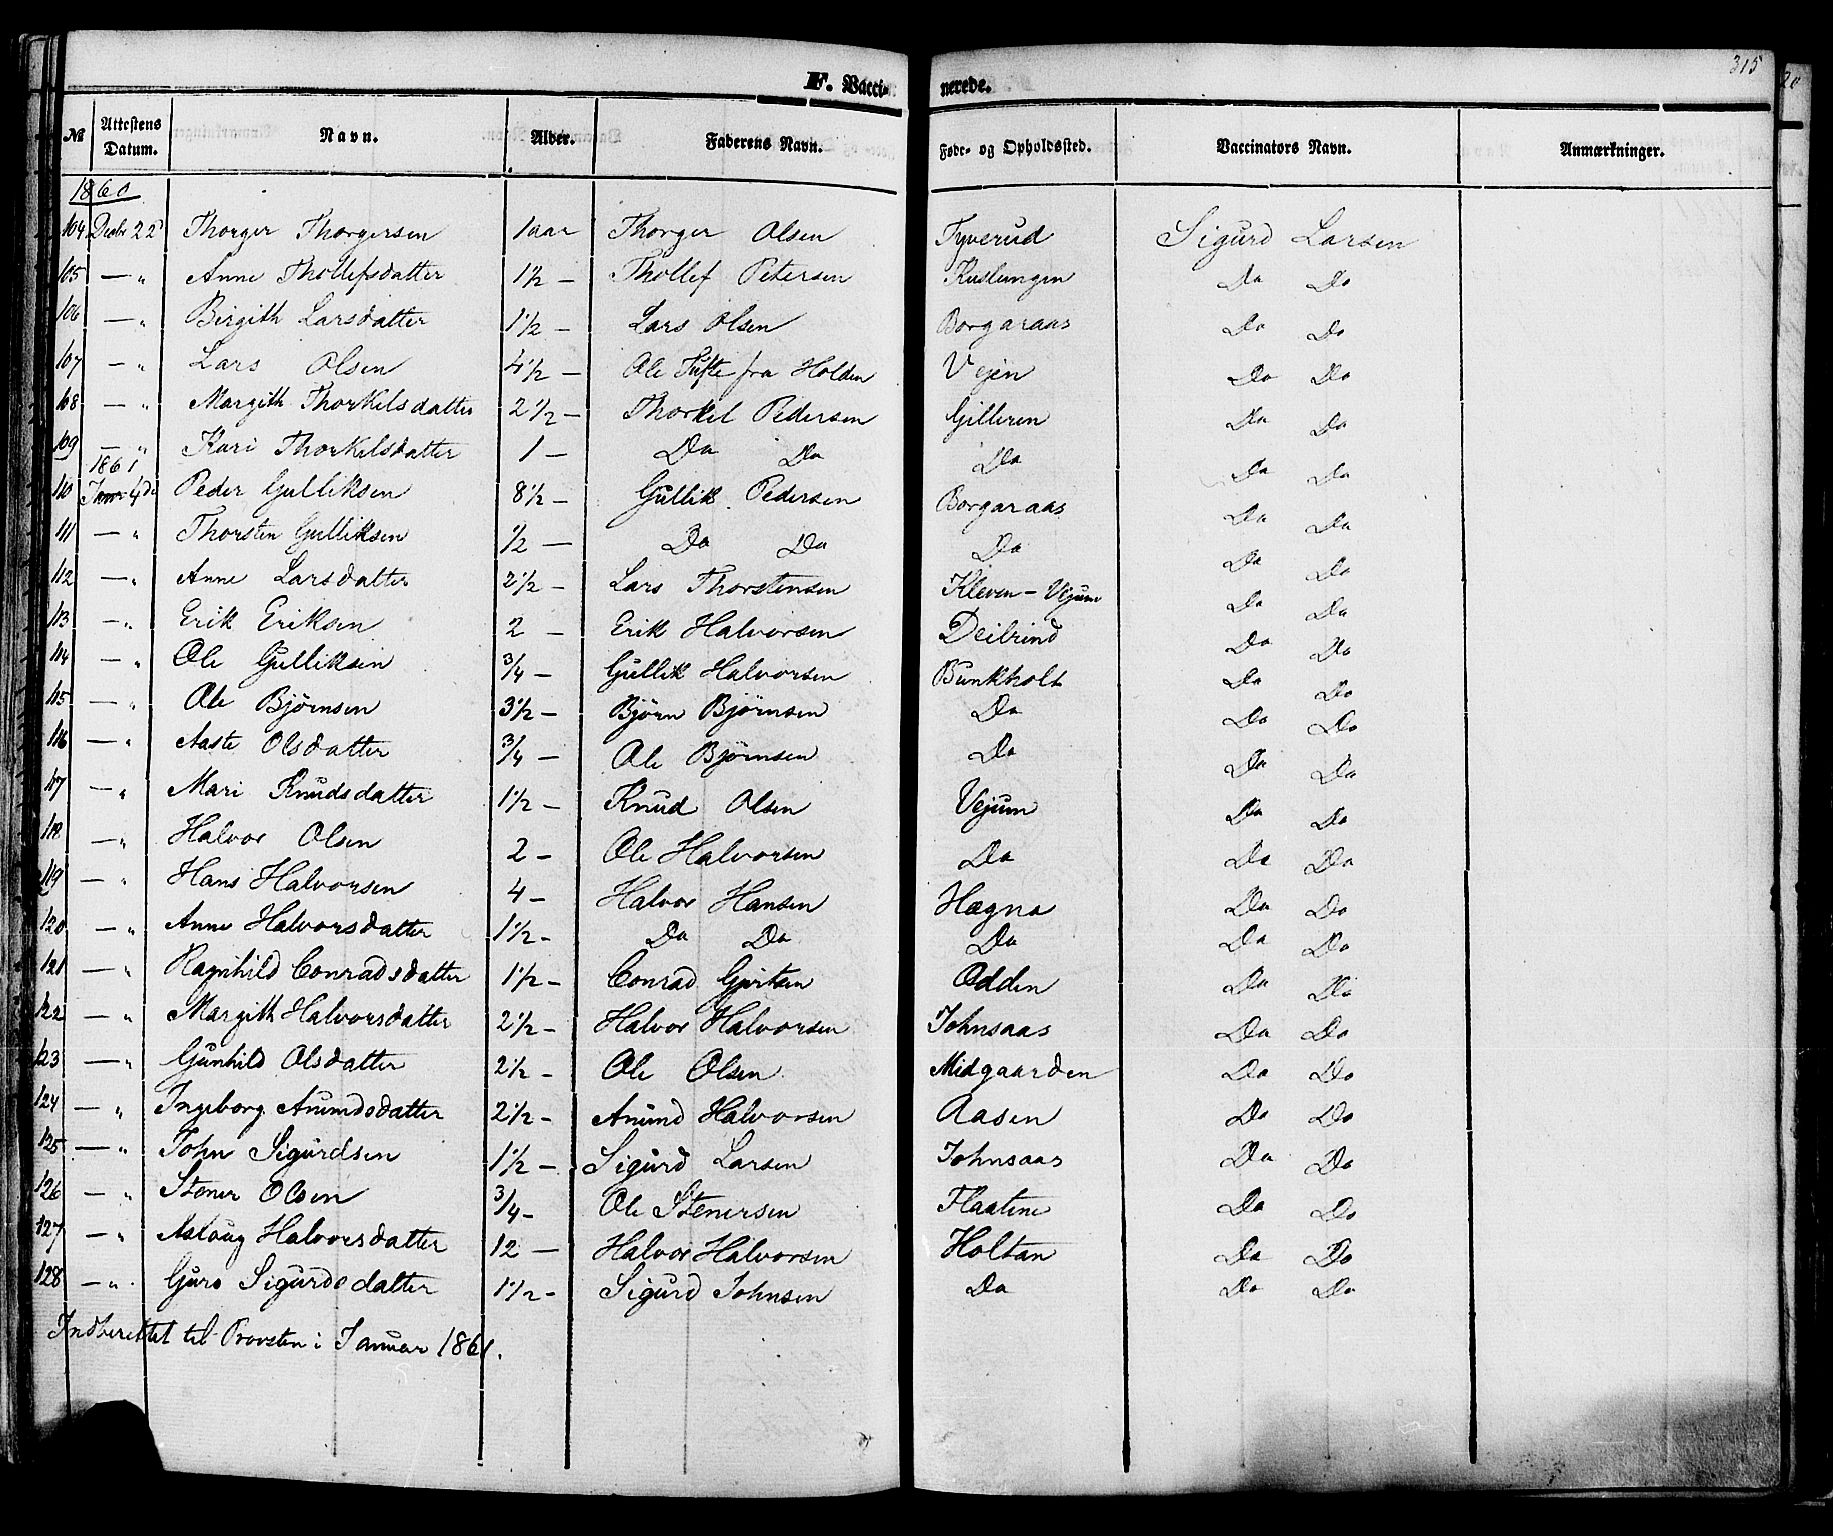 315
F. Vacci- nerede.
№ Attestens Datum. Navn. Alder. Faderens Navn. Føde- og Opholdssted. Vaccinators Navn. Anmærkninger.
1860
104 Decbr 22d Thorger Thorgersen 1 aar Thorger Olsen Tyverud Sigurd Larsen
105 — " Anne Thollefsdatter 1½ — Thollef Petersen Kuslungen Do Do
106 — " Birgith Larsdatter 1½ — Lars Olsen Borgaraas Do Do
107 — " Lars Olsen 4½ — Ole Tufte fra Holden Vejen Do Do
108 — " Margith Thorkelsdatter 2½ — Thorkel Pedersen Gilleren Do Do
109 — " Kari Thorkelsdatter 1 — Do Do Do Do Do
1861
110 Janr 4de Peder Gulliksen 8½ — Gullik Pedersen Borgaraas Do Do
111 — " Thorsten Gulliksen ½ — Do Do Do Do Do
112 — " Anne Larsdatter 2½ — Lars Thorstensen Kleven - Vejum Do Do
113 — " Erik Eriksen 2 — Erik Halvorsen Deilrind Do Do
114 — " Ole Gulliksen ¾ — Gullik Halvorsen Bunkholt Do Do
115 — " Ole Bjørnsen 3½ — Bjørn Bjørnsen Do Do Do
116 — " Aaste Olsdatter ¾ — Ole Bjørnsen Do Do Do
117 — " Mari Knudsdatter 1½ — Knud Olsen Vejum Do Do
118 — " Halvor Olsen 2 — Ole Halvorsen Do Do Do
119 — " Hans Halvorsen 4 — Halvor Hansen Hægna Do Do
120 — " Anne Halvorsdatter 1½ — Do Do Do Do Do
121 — " Ragnhild Conradsdatter 1½ — Conrad Gjertsen Odden Do Do
122 — " Margith Halvorsdatter 2½ — Halvor Halvorsen Johnsaas Do Do
123 — " Gunhild Olsdatter 2½ — Ole Olsen Midgaarden Do Do
124 — " Ingeborg Anundsdatter 2½ — Anund Halvorsen Aasen Do Do
125 — " John Sigurdsen 1½ — Sigurd Larsen Johnsaas Do Do
126 — " Stener Olsen ¾ — Ole Stenersen Flaatine Do Do
127 — " Aslaug Halvorsdatter 12 — Halvor Halvorsen Holtan Do Do
128 — " Guro Sigurdsdatter 1½ — Sigurd Johnsen Do Do Do
Indberettet til Provsten i Januar 1861.